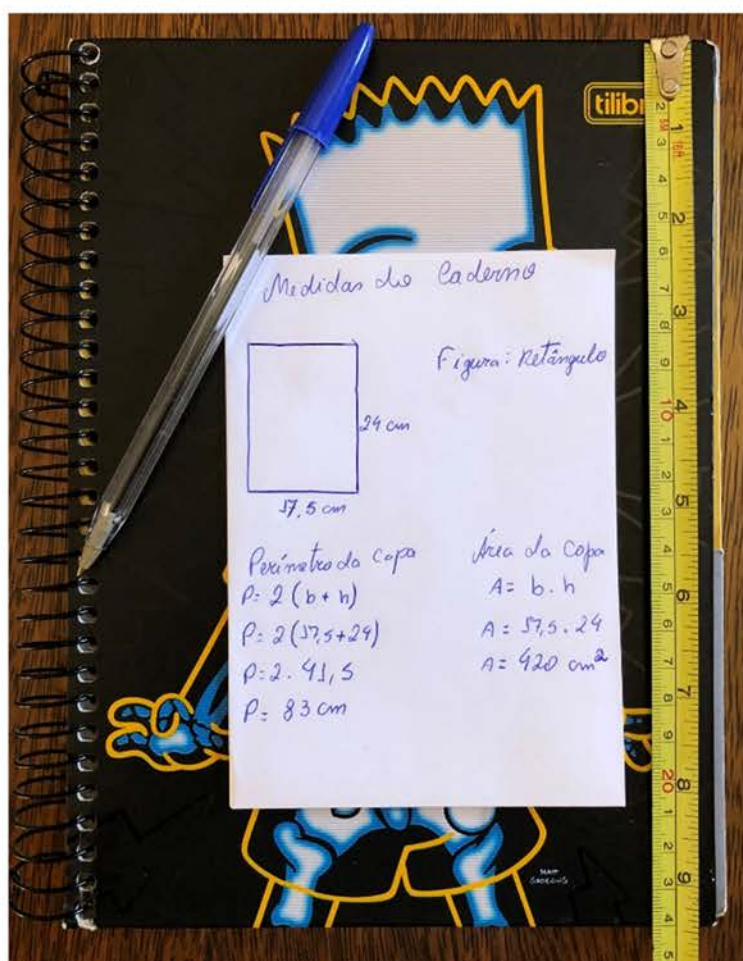 tilibr
Medidas do Caderno
Figura: Retângulo
24 cm
17,5 cm
Perímetro da Capa
P= 2 (b + h)
P= 2(17,5+24)
P= 2. 41,5
P= 83 cm
Área da Capa
A= b. h
A= 17,5. 24
A= 420 cm²
MATT
GROENING
1
2
3
4
5
6
7
8
9
10
20